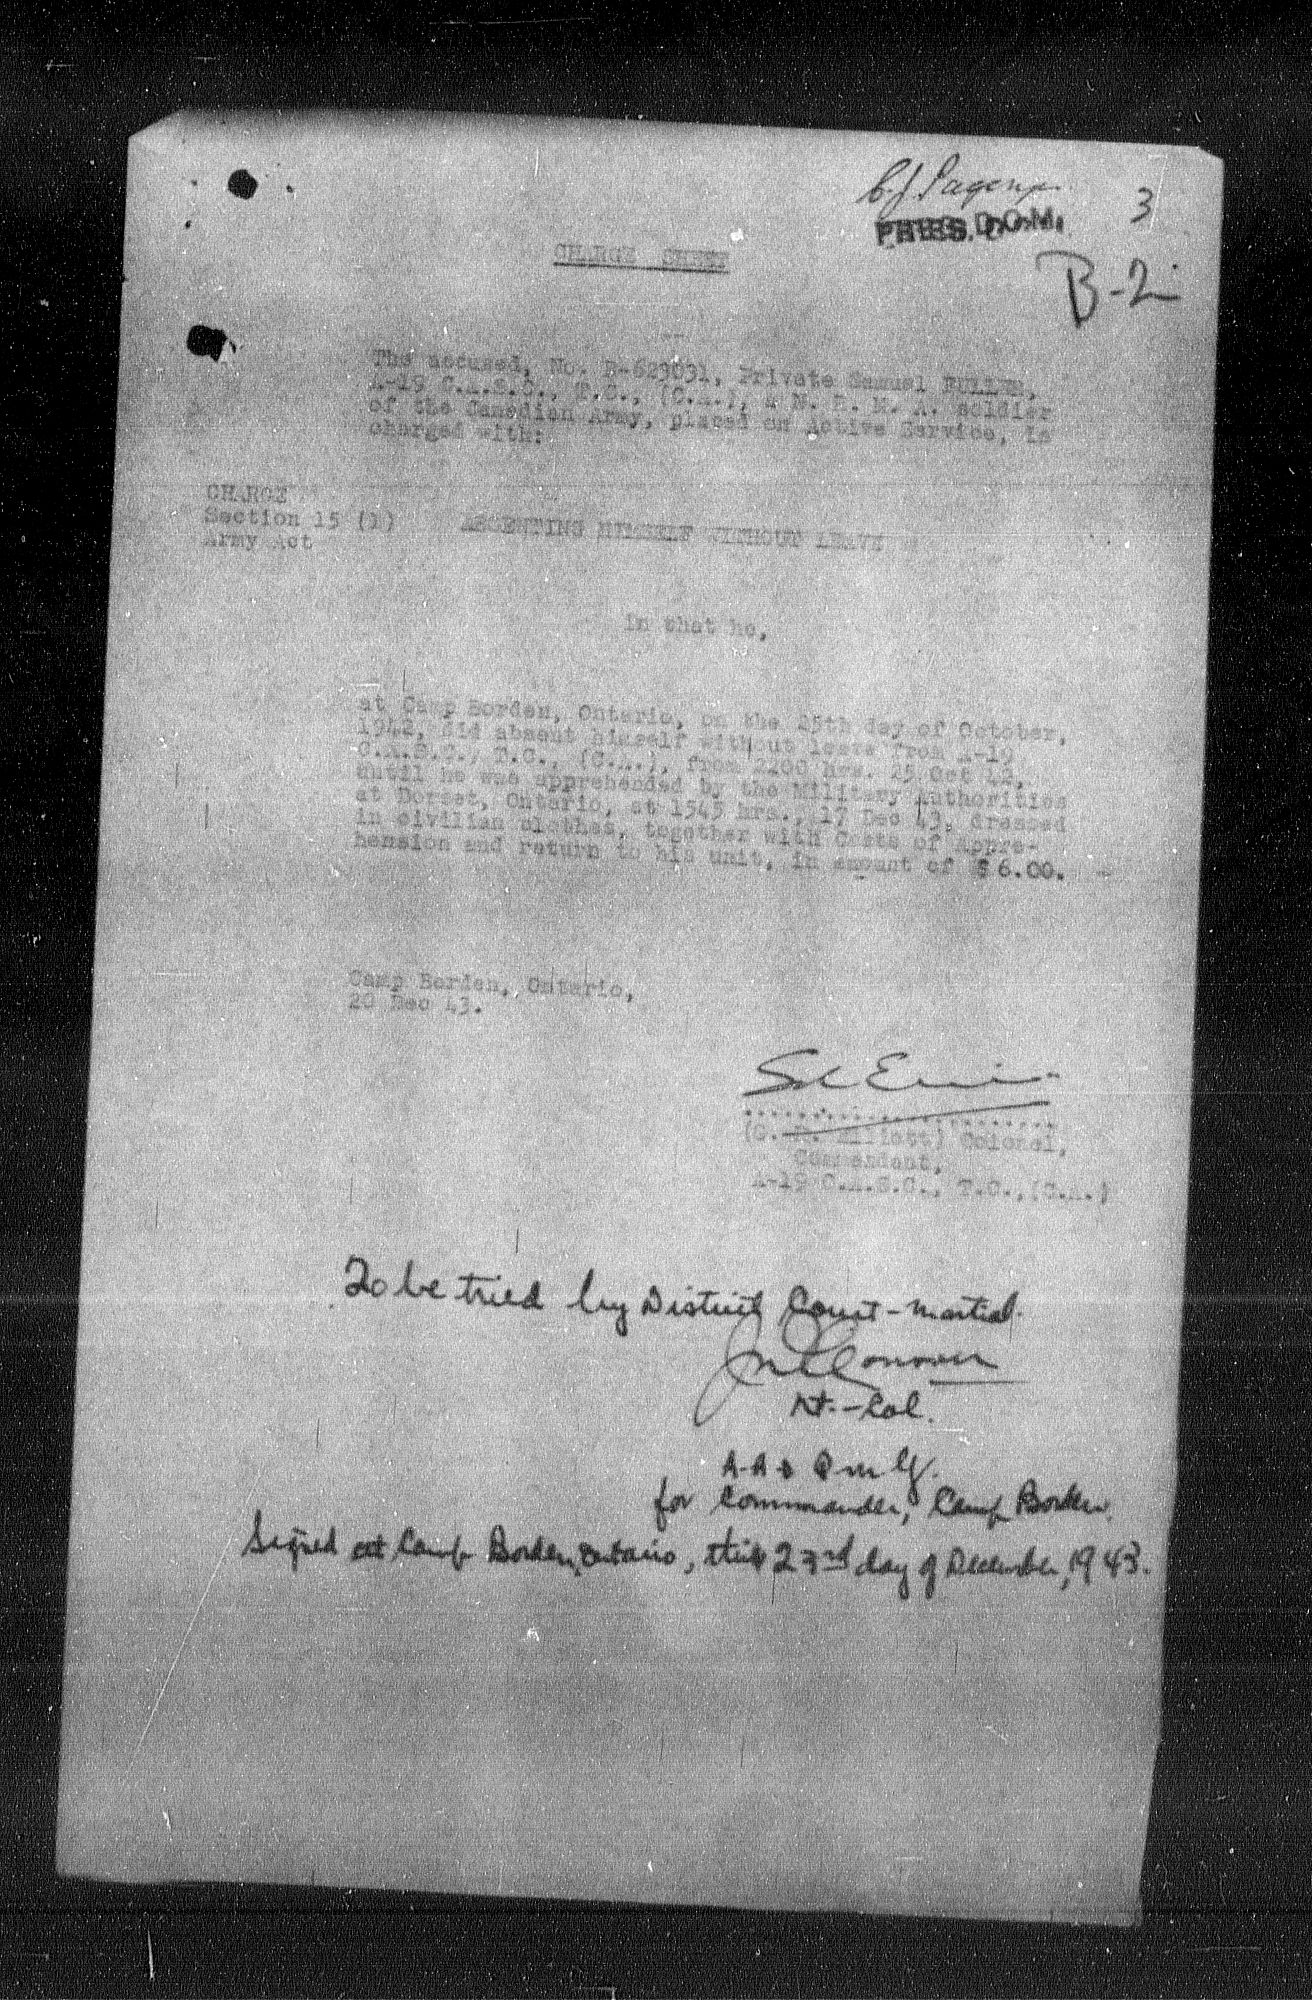 3
PRES. D.C.M.
B-2
CHARGE SHEET
The accused, No. B-629031, Private Samuel FULLER,
A-19 C.A.S.C., T.C., (C.A.), a N. R. M. A. soldier
of the Canadian Army, placed on Active Service, is
charged with:
CHARGE
Section 15 (1) ABSENTING HIMSELF WITHOUT LEAVE
Army Act
In that he,
at Camp Borden, Ontario, on the 25th day of October,
1942, did absent himself without leave from A-19
C.A.S.C., T.C., (C.A.), from 2200 hrs. 25 Oct 42,
until he was apprehended by the Military Authorities
at Dorset, Ontario, at 1545 hrs., 17 Dec 43, dressed
in civilian clothes, together with Costs of Appre-
hension and return to his unit, in amount of $ 6.00.
Camp Borden, Ontario,
20 Dec 43.
Colonel,
Commandant,
A-19 C.A.S.C., T.C.,(C.A.)
To be tried by District Court-Martial.
Conover
Lt.-Col.
A.A. & Q.M.G.
for Commander, Camp Borden.
Signed at Camp Borden, Ontario, this 23rd day of December, 1943.